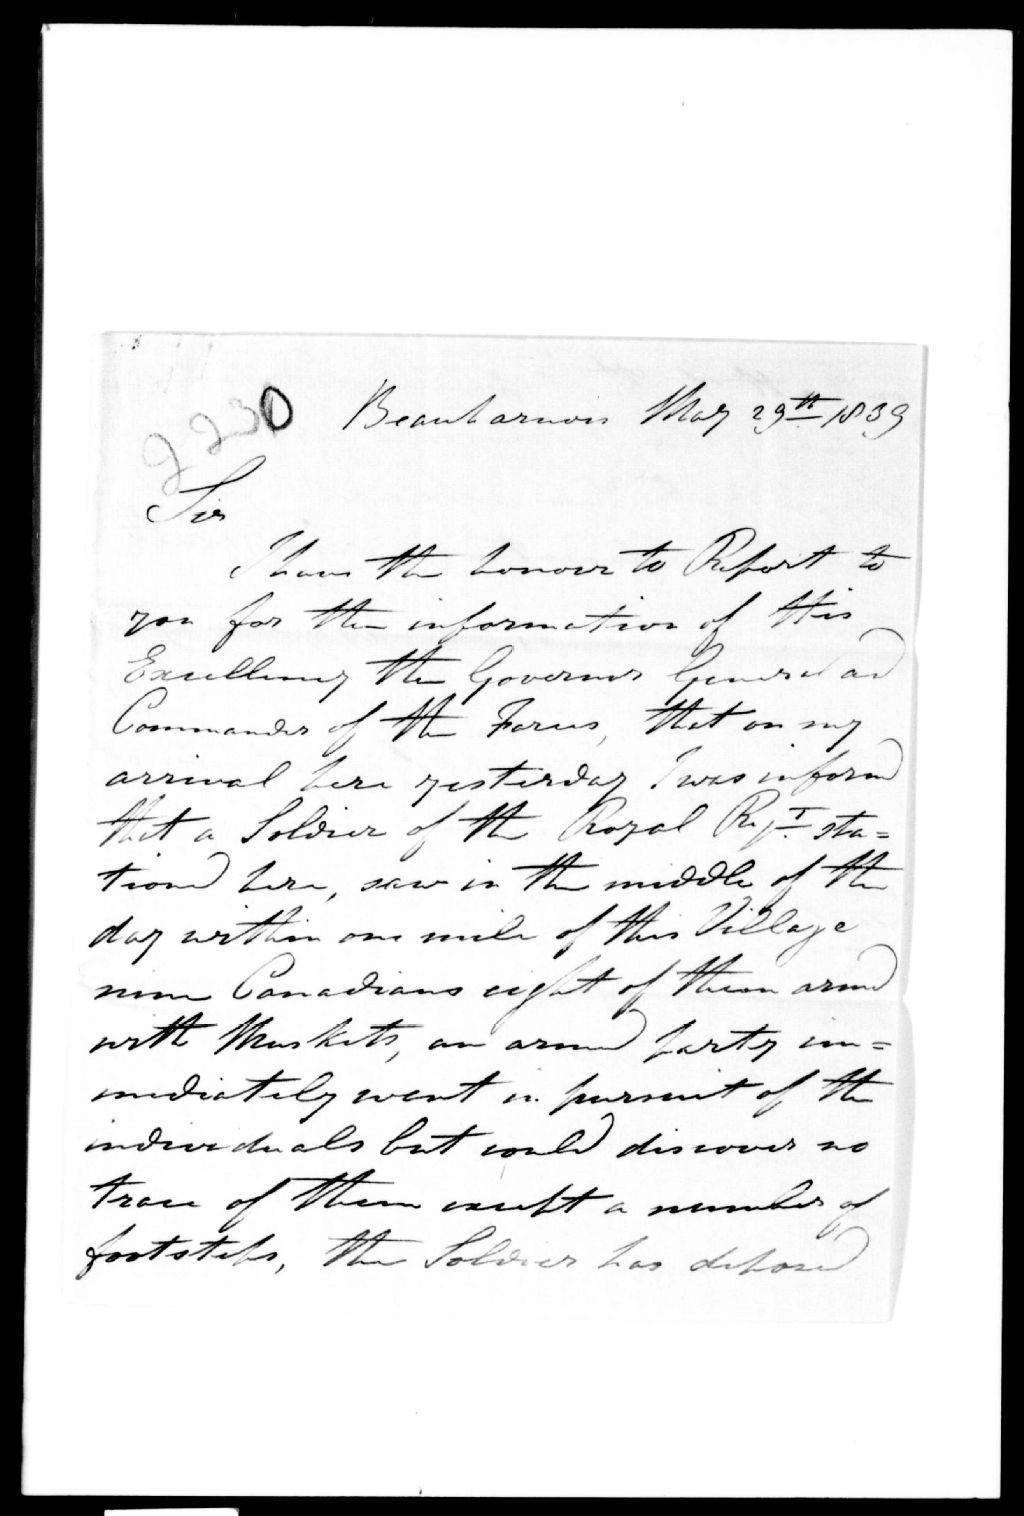 2230
Beauharnois May 29th 1839
Sir
I have the honour to Report to
you for the information of His
Excellency the Governor General and
Commander of the Forces, that on my
arrival here yesterday I was informed
that a Soldier of the Royal Regt. sta=
tioned here, saw in the middle of the
day within one mile of this Village
nine Canadians eight of them armed
with Muskets, an armed party im=
mediately went in pursuit of the
individuals but could discover no
trace of them except a number of
footsteps, the Soldier has deposed